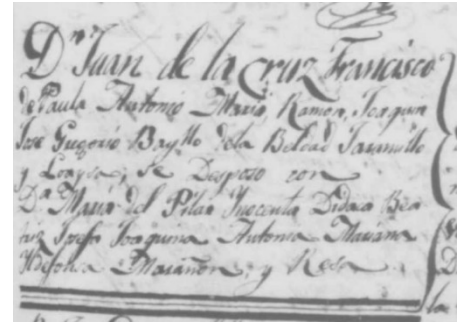 Dn. Juan de la Cruz Francisco
de Paula Antonio Maria Ramon, Joaquin
Jose Gregorio Bayllo dela Beldad Jaramillo
y Loaysa, se Desposo con
Da. Maria del Pilar Inocenta Didaca Bea
riz Josefa Joaquina Antonia Mariana
Ildefonsa Marañon, y Resa